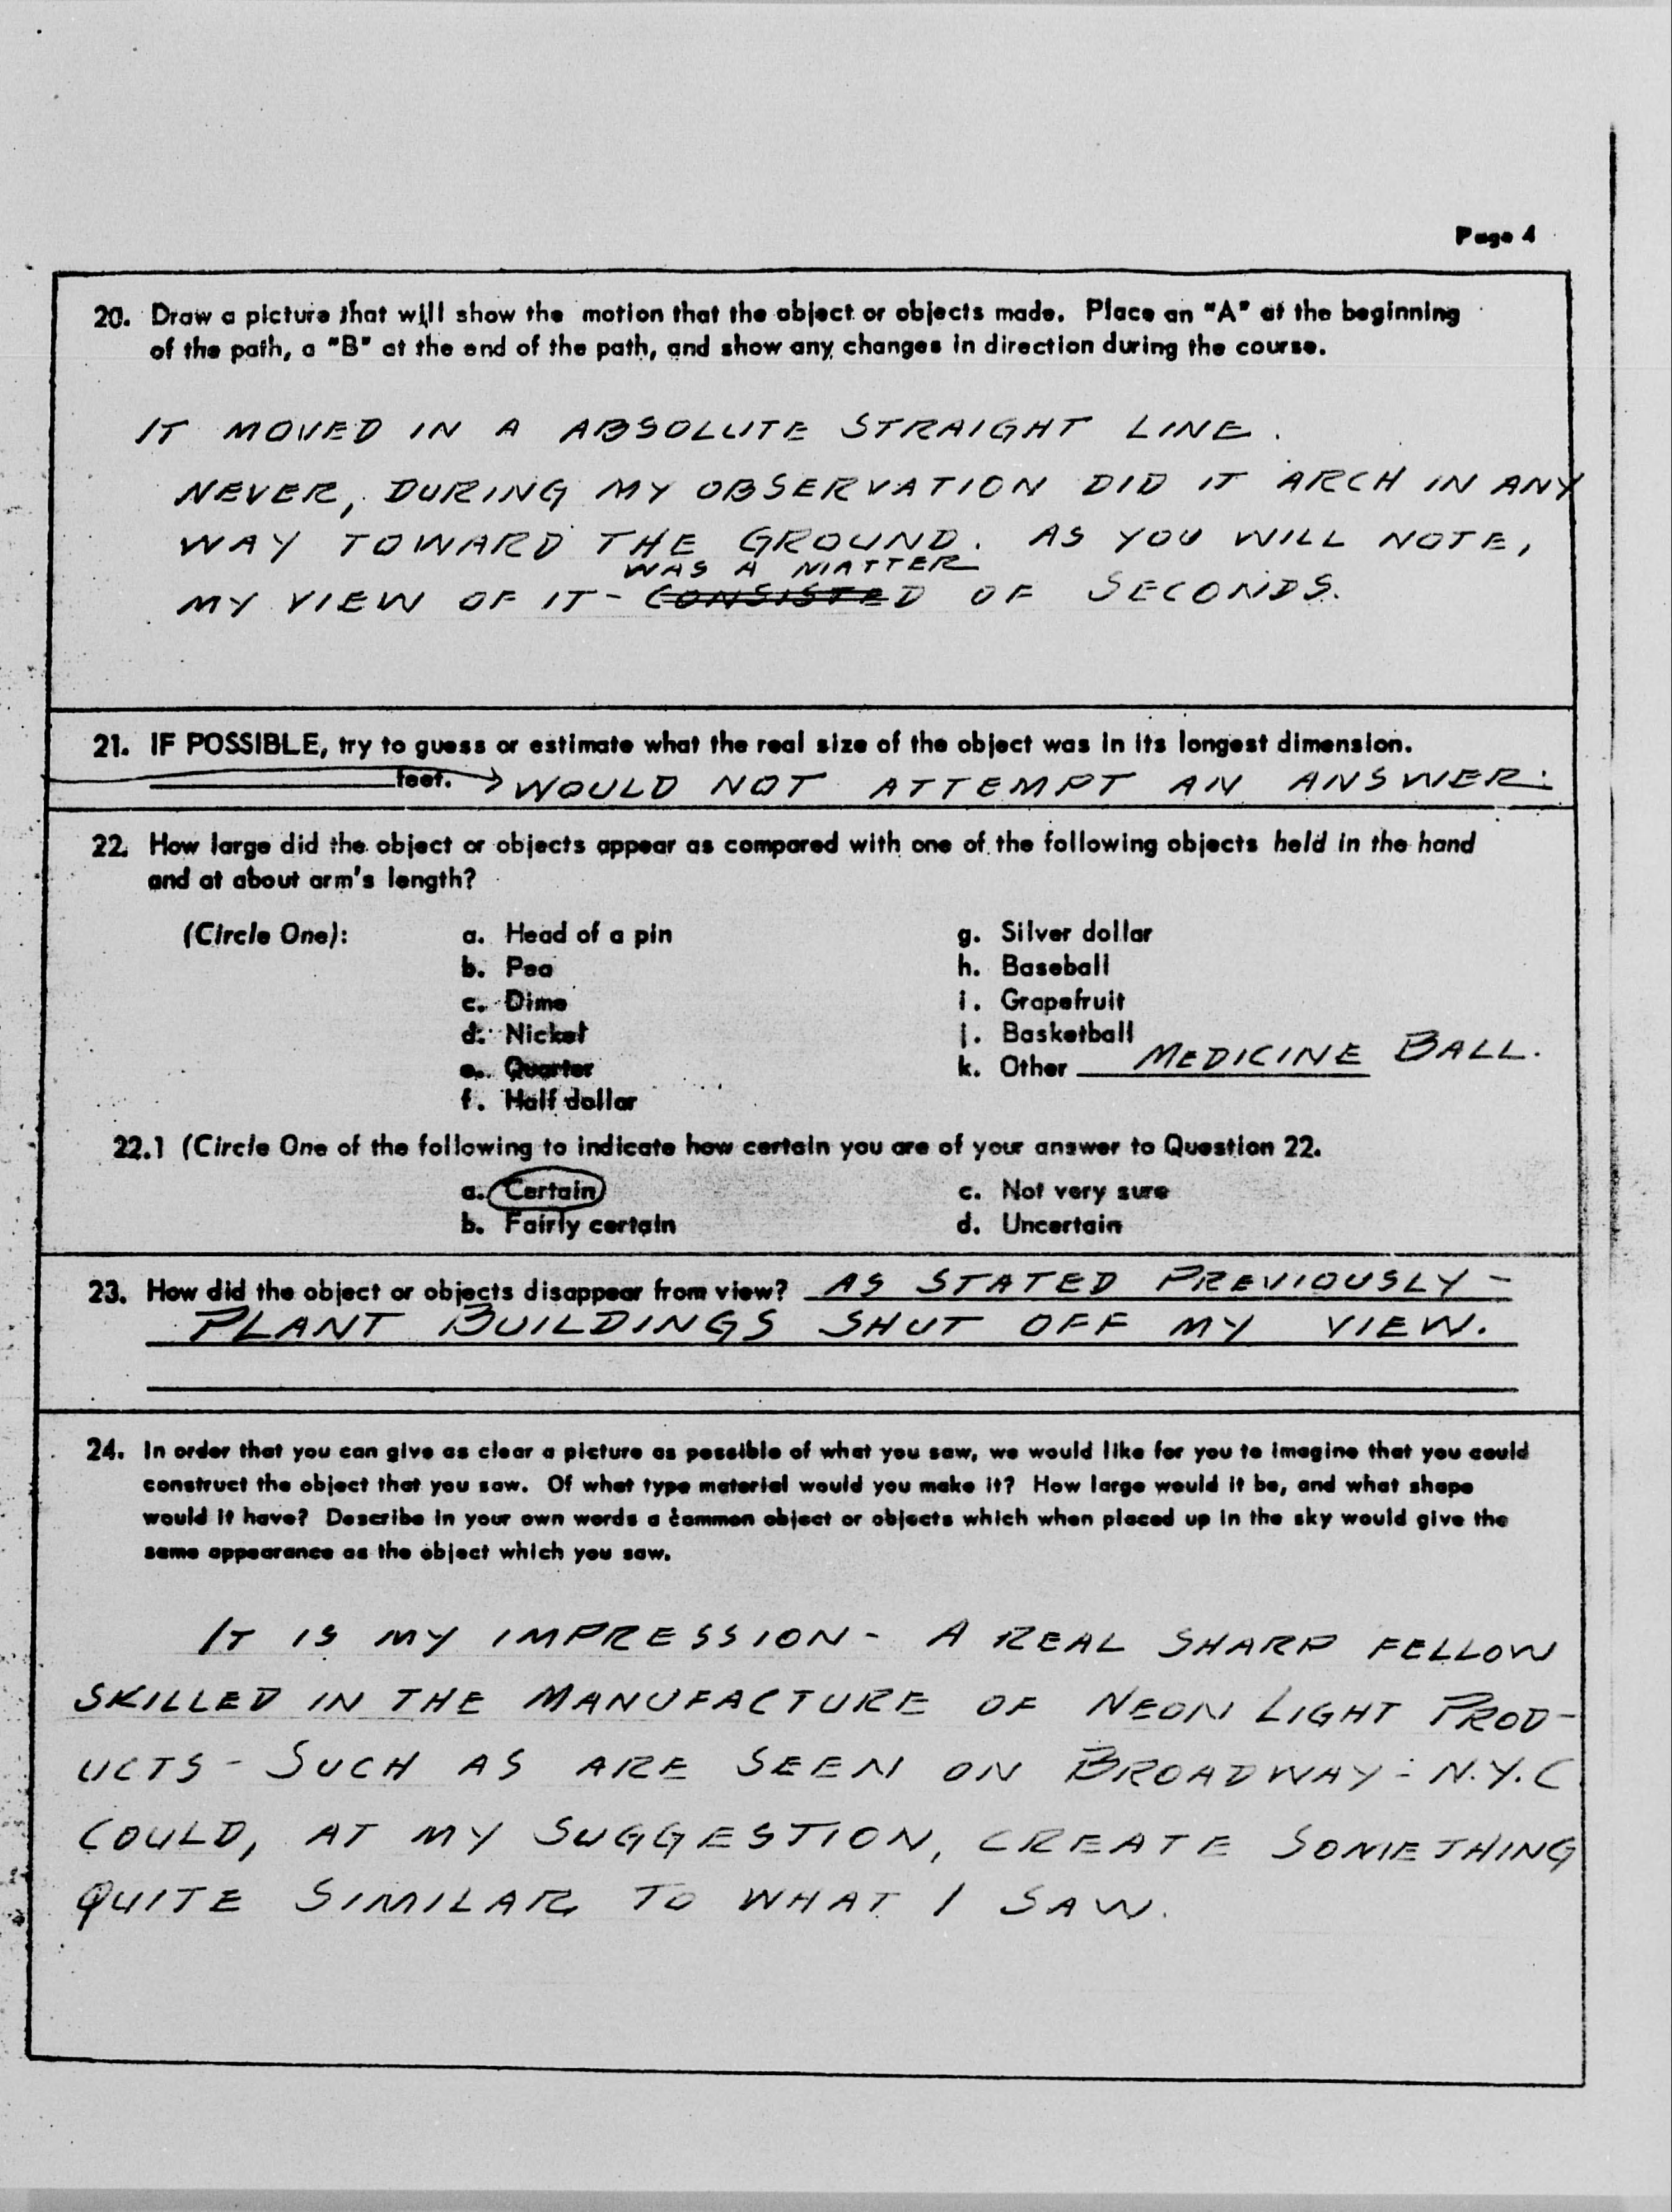 Page 4
20. Draw a picture that will show the motion that the object or objects made. Place an "A" at the beginning
of the path, a "B" at the end of the path, and show any changes in direction during the course.
IT MOVED IN A ABSOLUTE STRAIGHT LINE.
NEVER, DURING MY OBSERVATION DID IT ARCH IN ANY
WAY TOWARD THE GROUND. AS YOU WILL NOTE,
WAS A MATTER
MY VIEW OF IT - CONSISTED OF SECONDS.
21. IF POSSIBLE, try to guess or estimate what the real size of the object was in its longest dimension.
feet. WOULD NOT ATTEMPT AN ANSWER.
22. How large did the object or objects appear as compared with one of the following objects held in the hand
and at about arm's length?
(Circle One): a. Head of a pin g. Silver dollar
b. Pea h. Baseball
c. Dime i. Grapefruit
d. Nickel j. Basketball
e. Quarter k. Other MEDICINE BALL.
f. Half dollar
22.1 (Circle One of the following to indicate how certain you are of your answer to Question 22.
a. Certain c. Not very sure
b. Fairly certain d. Uncertain
23. How did the object or objects disappear from view? AS STATED PREVIOUSLY -
PLANT BUILDINGS SHUT OFF MY VIEW.
24. In order that you can give as clear a picture as possible of what you saw, we would like for you to imagine that you could
construct the object that you saw. Of what type material would you make it? How large would it be, and what shape
would it have? Describe in your own words a common object or objects which when placed up in the sky would give the
same appearance as the object which you saw.
IT IS MY IMPRESSION - A REAL SHARP FELLOW
SKILLED IN THE MANUFACTURE OF NEON LIGHT PROD-
UCTS - SUCH AS ARE SEEN ON BROADWAY - N.Y.C
COULD, AT MY SUGGESTION, CREATE SOMETHING
QUITE SIMILAR TO WHAT I SAW.